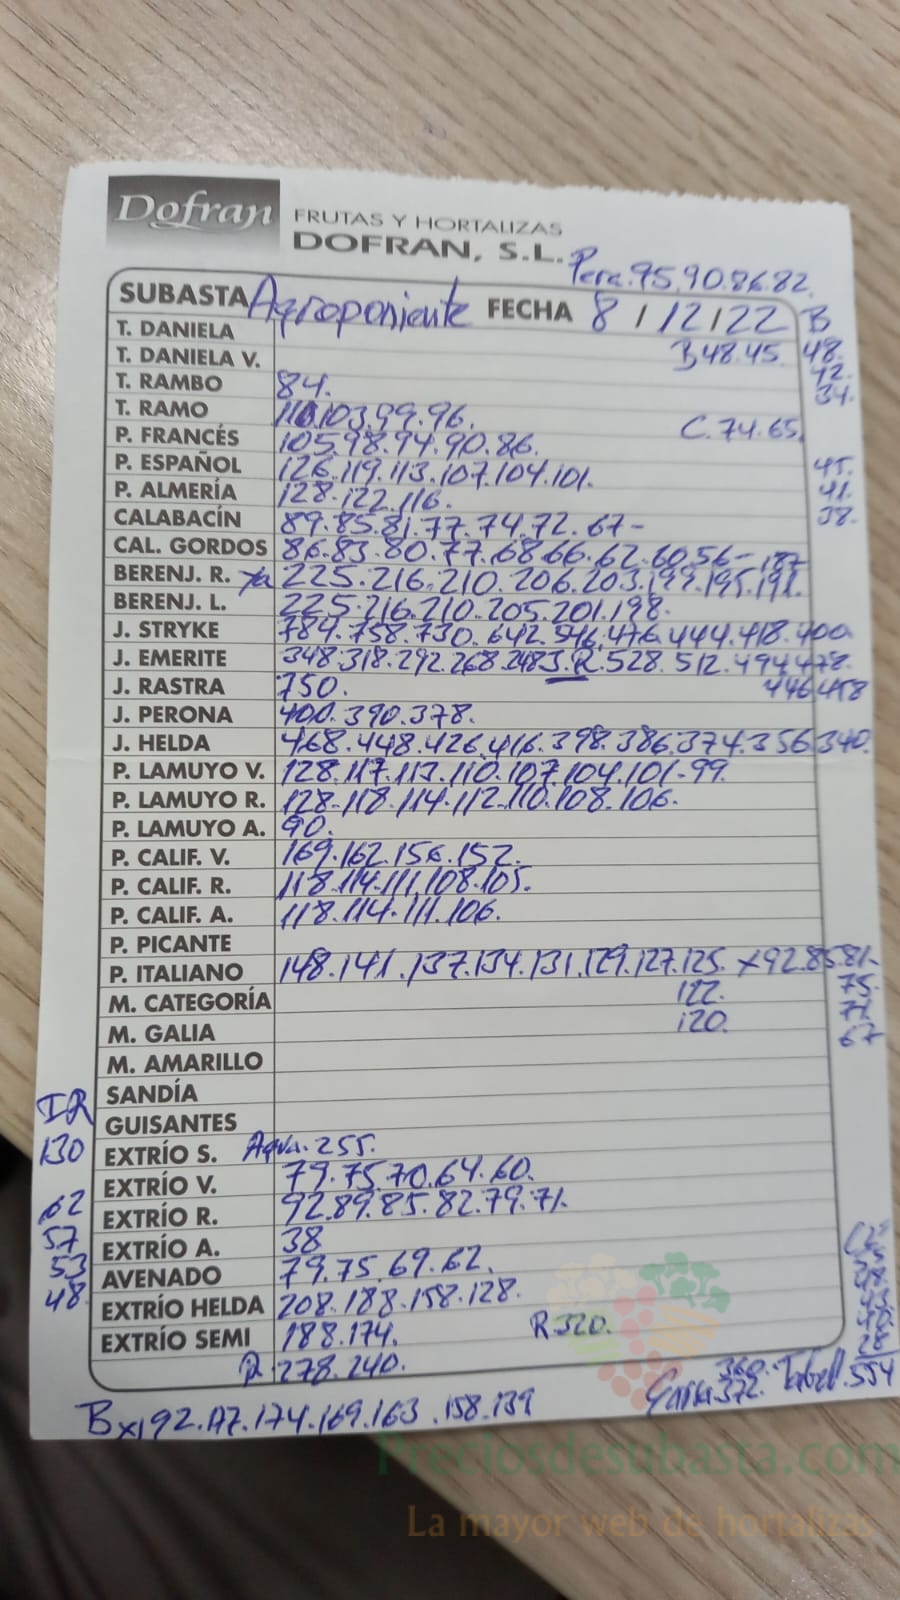 Dofran
FRUTAS Y HORTALIZAS
DOFRAN, S.L.
Pera.95.90.86.82.
SUBASTA Agroponiente FECHA 8/12/22 B
T. DANIELA B48.45. 48.
T. DANIELA V. 42.
T. RAMBO 84. 34.
T. RAMO 110.103.99.96. C.74.65.
P. FRANCÉS 105.98.94.90.86.
P. ESPAÑOL 126.119.113.107.104.101. 45.
P. ALMERÍA 128.122.116. 41.
CALABACÍN 89.85.81.77.74.72.67- 38.
CAL. GORDOS 86.83.80.77.68.66.62.60.56-
187
BERENJ. R. 225.216.210.206.203.199.195.191.
BERENJ. L. 225.216.210.205.201.198.
J. STRYKE 784.758.730.642.546.476.444.418.400.
J. EMERITE 348.318.292.268.248 J.R.528.512.494.478.
J. RASTRA 750. 446.458
J. PERONA 400.390.378.
J. HELDA 468.448.426.416.398.386.374.356.340.
P. LAMUYO V. 128.117.113.110.107.104.101-99.
P. LAMUYO R. 128-118.114-112.110.108.106.
P. LAMUYO A. 90.
P. CALIF. V. 169.162.156.152.
P. CALIF. R. 118.114.111.108.105.
P. CALIF. A. 118.114.111.106.
P. PICANTE
P. ITALIANO 148.141.137.134.131.129.127.125. x92.85.81-
M. CATEGORÍA 122. 75.
M. GALIA 120. 71.
67
M. AMARILLO
SANDÍA
IR
GUISANTES
130 EXTRÍO S. Agva.255.
EXTRÍO V. 79.75.70.64.60.
62 EXTRÍO R. 92.89.85.82.79.71.
57 EXTRÍO A. 38
53 AVENADO 79.75.69.62.
48. EXTRÍO HELDA 208.188.158.128.
EXTRÍO SEMI 188.174. R320.
28
R.278.240. 360.
Garra 372. Tabell.554
Bx192.177.174.169.163.158.139
Preciosdesubasta.com
La mayor web de hortalizas